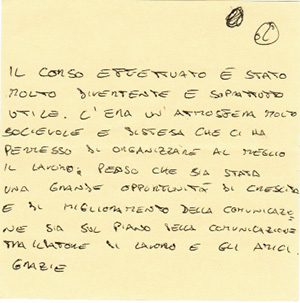 IL CORSO EFFETTUATO È STATO
MOLTO DIVERTENTE E SOPRATTUTTO
UTILE. C'ERA UN'ATMOSFERA MOLTO
SOCIEVOLE E DISTESA CHE CI HA
PERMESSO DI ORGANIZZARE AL MEGLIO
IL LAVORO; PENSO CHE SIA STATA
UNA GRANDE OPPORTUNITÀ DI CRESCITA
E DI MIGLIORAMENTO DELLA COMUNICAZIO
NE SIA SUL PIANO DELLA COMUNICAZIONE
TRA DATORE DI LAVORO E GLI AMICI.
GRAZIE